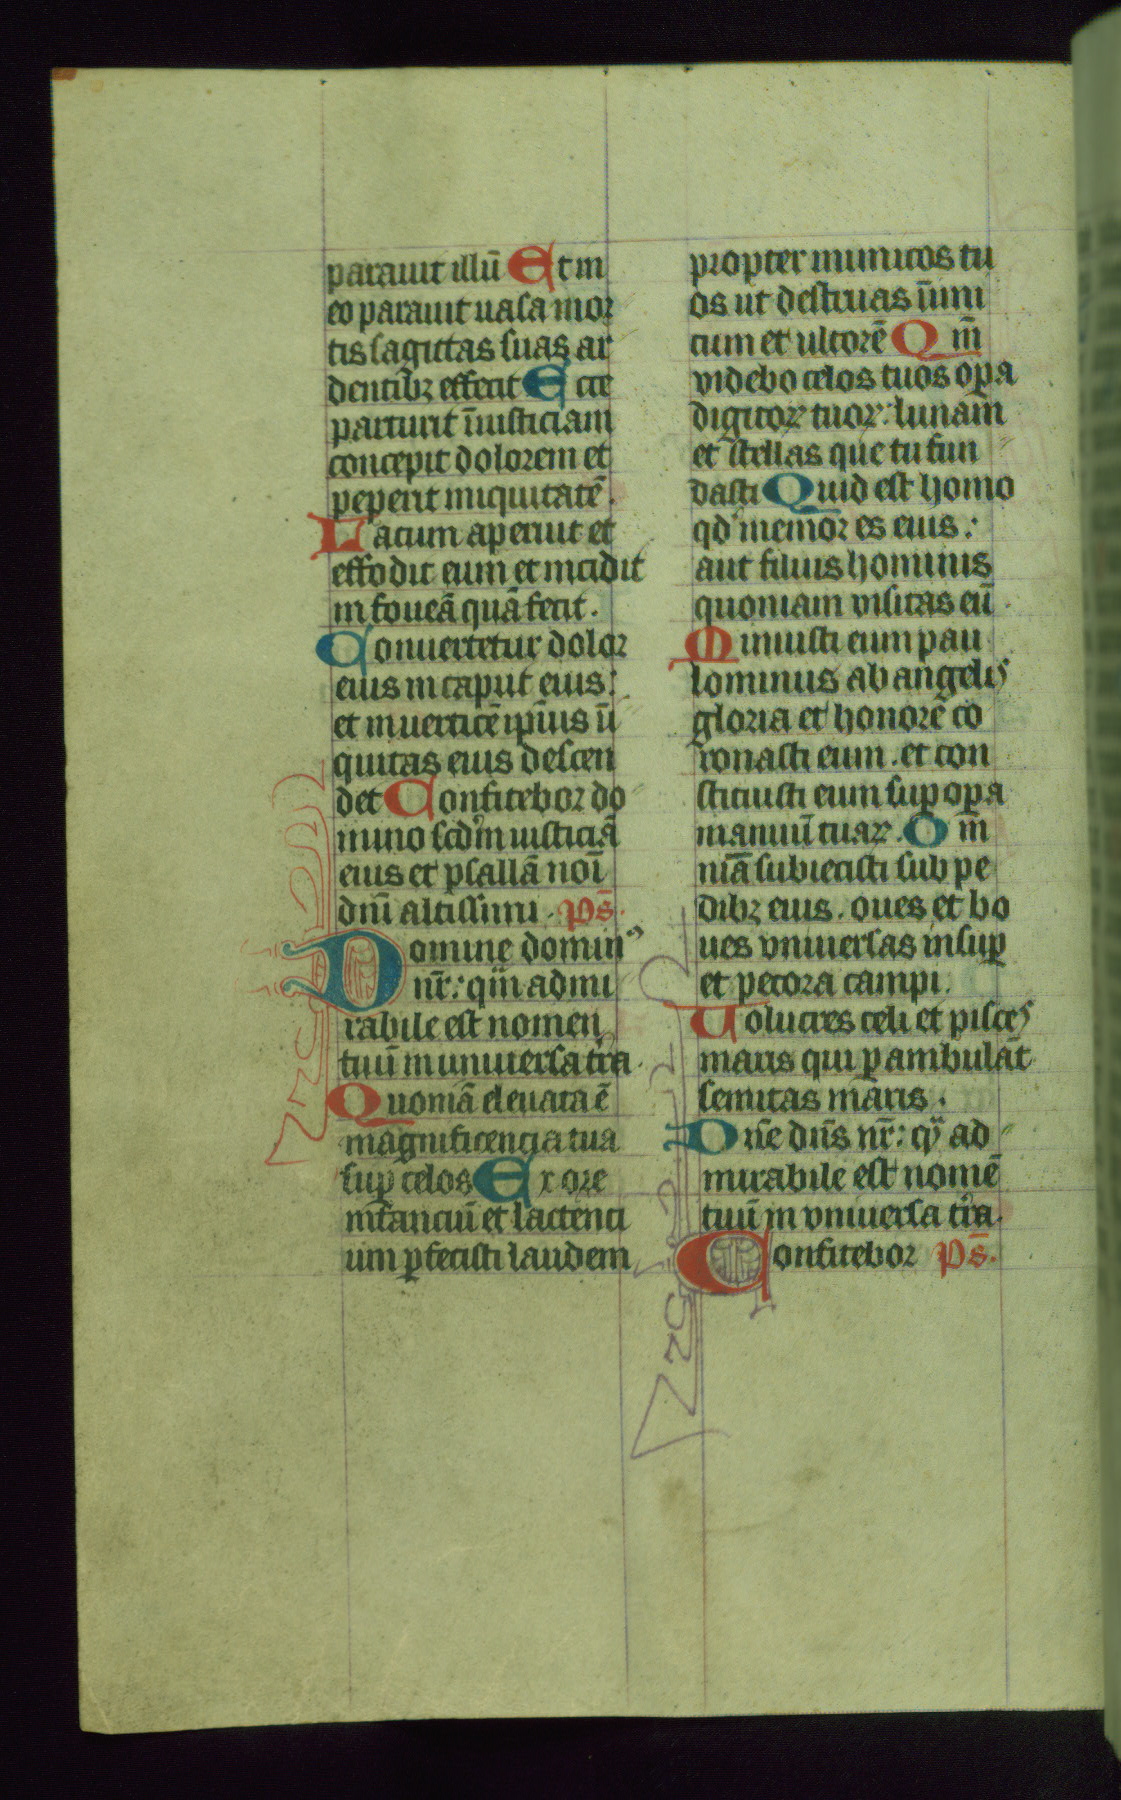 parauit illū Et in
eo parauit uasa mor
tis sagittas suas ar
dentibꝫ effecit Ecce
parturit īiusticiam
concepit dolorem et
peperit iniquitatē.
Lacum aperuit et
effodit eum et incidit
in foueā quā fecit.
Conuertetur dolor
eius in caput eius:
et in uerticē ipīus īi
quitas eius descen
det Confitebor do
mino scdm iusticiā
eius et psallā noī
dnī altissimi. Ps̄.
Domine domin⁹
nr̄: qm̄ admi
rabile est nomen
tuū in uniuersa tr̄a.
Quoniā eleuata ē
magnificencia tua
suꝑ celos Ex ore
infanciū et lactenci
um ꝑfecisti laudem
propter inimicos tu
os ut destruas īimi
cum et ultorē Qm̄
videbo celos tuos opa
digitoꝝ tuoꝝ: lunam
et stellas que tu fun
dasti Quid est homo
qd memor es eius:
aut filius hominis
quoniam visitas eū.
Minuisti eum pau
lominus ab angelis
gloria et honorē co
ronasti eum. et con
stituisti eum suꝑ opa
manuū tuaꝝ. Om̄
nia subiecisti sub pe
dibꝫ eius. oues et bo
ues vniuersas insuꝑ
et pecora campi.
Uolucres celi et pisces
maris qui ꝑambulāt
semitas maris.
Dn̄e dn̄s nr̄: qͫ ad
mirabile est nomē
tuū in vniuersa tr̄a.
Confitebor Ps̄.